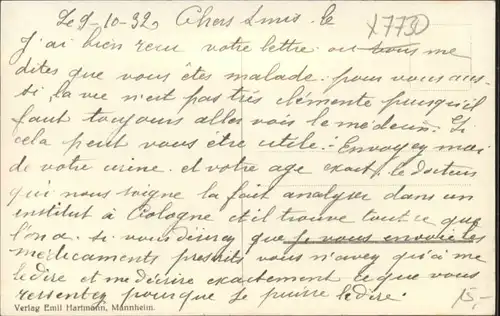 Le 9-10-32, Chers Amis. le
x7730
J'ai bien reçu votre lettre ou vous me
dites que vous êtes malade. pour vous aus-
si, la vie n'est pas très clémente puisqu'il
faut toujours aller voir le médecin. Si
cela peut vous être utile. - Envoyez moi
de votre urine. et votre age exact. le docteur
qui nous soigne la fait analyser dans un
institut à Cologne et il trouve tout ce que
l'on a. Si vous désirez que je vous envoie les
médicaments prescrits vous n'avez qu'à me
le dire et me décrire exactement ce que vous
ressentez pourque je puisse le dire.
15,-
Verlag Emil Hartmann, Mannheim.